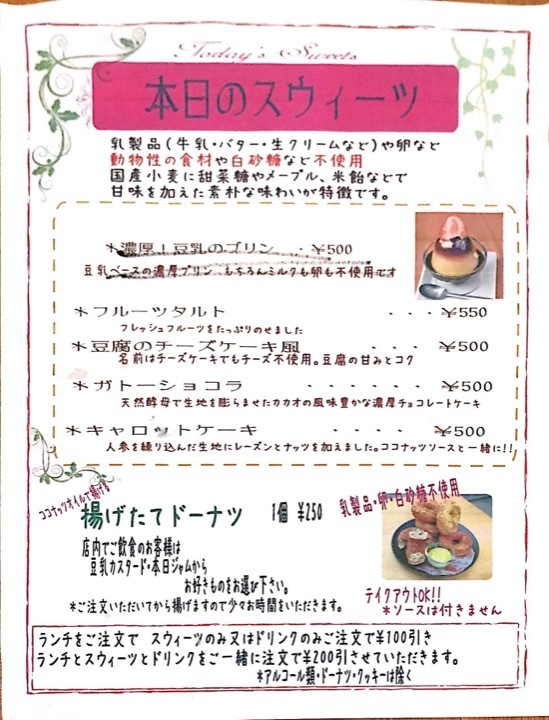 Today's Sweets
本日のスウィーツ
乳製品(牛乳・バター・生クリームなど)や卵など
動物性の食材や白砂糖など不使用
国産小麦に甜菜糖やメープル、米飴などで
甘味を加えた素朴な味わいが特徴です。
*濃厚!豆乳のプリン ・・¥500
豆乳ベースの濃厚プリン もちろんミルクも卵も不使用です
*フルーツタルト ・・・¥550
フレッシュフルーツをたっぷりのせました
*豆腐のチーズケーキ風 ・・・¥500
名前はチーズケーキでもチーズ不使用。豆腐の甘みとコク
*ガトーショコラ ・・・・・・¥500
天然酵母で生地を膨らませたカカオの風味豊かな濃厚チョコレートケーキ
*キャロットケーキ ・・・・¥500
人参を練り込んだ生地にレーズンとナッツを加えました。ココナッツソースと一緒に!!
ココナッツオイルで揚げる
揚げたてドーナツ 1個 ¥250
乳製品・卵・白砂糖不使用
店内でご飲食のお客様は
豆乳カスタード・本日ジャムから
お好きものをお選び下さい。
*ご注文いただいてから揚げますので少々お時間をいただきます。
テイクアウトOK!!
*ソースは付きません
ランチをご注文で スウィーツのみ又はドリンクのみご注文で¥100引き
ランチとスウィーツとドリンクをご一緒に注文で¥200引させていただきます。
*アルコール類・ドーナツ・クッキーは除く